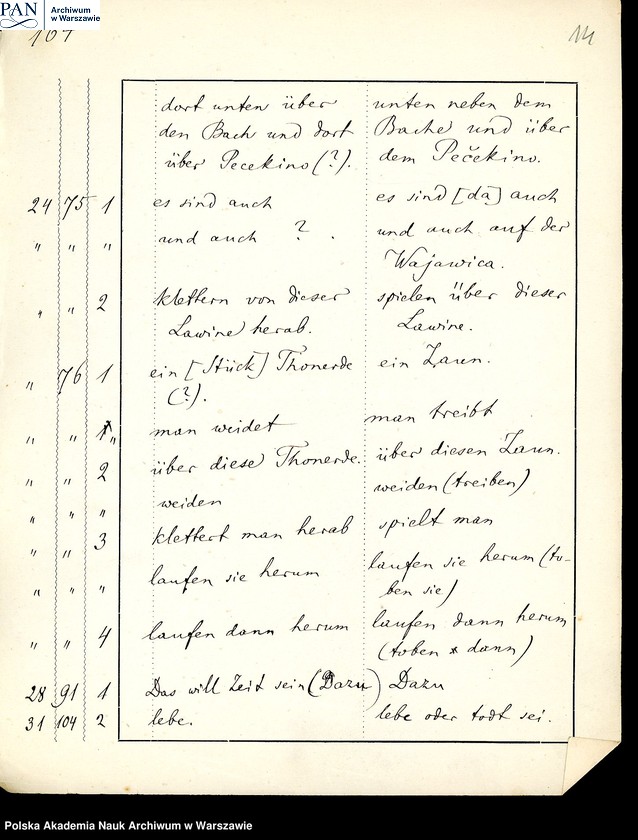 PAN Archiwum w Warszawie
107 14
dort unten über unten neben dem
den Bach und dort Bache und über
über Pecekino (?). dem Pečekino.
24 75 1 es sind auch es sind [da] auch
" " " und auch ? . und auch auf der
Wajawica.
" " 2 klettern von dieser spielen über dieser
Lawine herab. Lawine.
" 76 1 ein [Stück] Thonerde ein Zaun.
(?).
" " " man weidet man treibt
" " 2 über diese Thonerde. über diesen Zaun.
" " " weiden weiden (treiben)
" " 3 klettert man herab spielt man
" " " laufen sie herum laufen sie herum (to-
ben sie)
" " 4 laufen dann herum laufen dann herum
(toben dann)
28 91 1 Das will Zeit sein (Dazu) Dazu
31 104 2 lebe. lebe oder todt sei.
Polska Akademia Nauk Archiwum w Warszawie